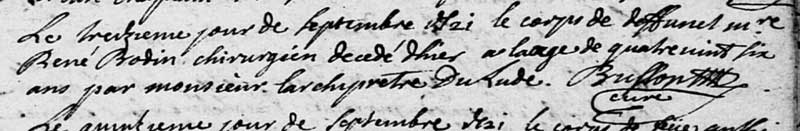 Le treizieme jour de septembre 1721 le corps de deffunct mre
René Bodin chirurgien decedé d'hier a laage de quatrevint six
ans par monsieur larchipretre Du Lude. Busson
curé
quinzieme jour de septembre 1721 le corps de